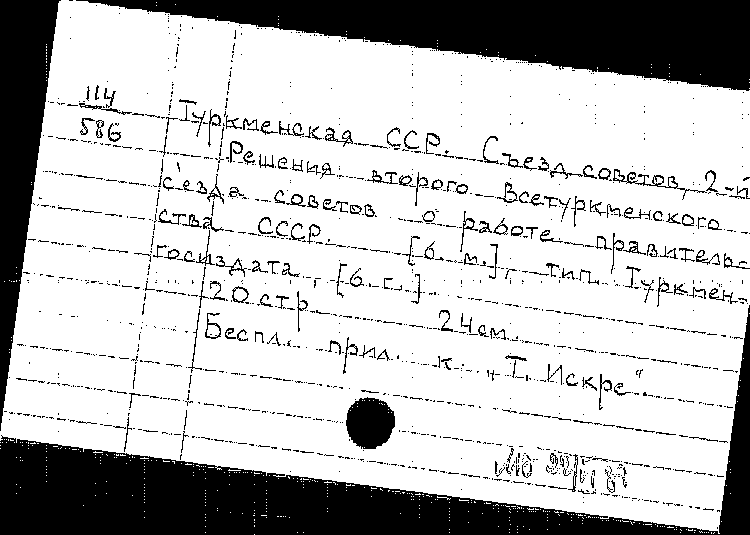 114
586
Туркменская ССР. Съезд советов, 2-й
Решения второго Всетуркменского
с'езда советов о работе правитель-
ства СССР. [б. м.], тип. Туркмен-
госиздата, [б. г.].
20 стр. 24 см.
Беспл. прил. к „Т. Искре“.